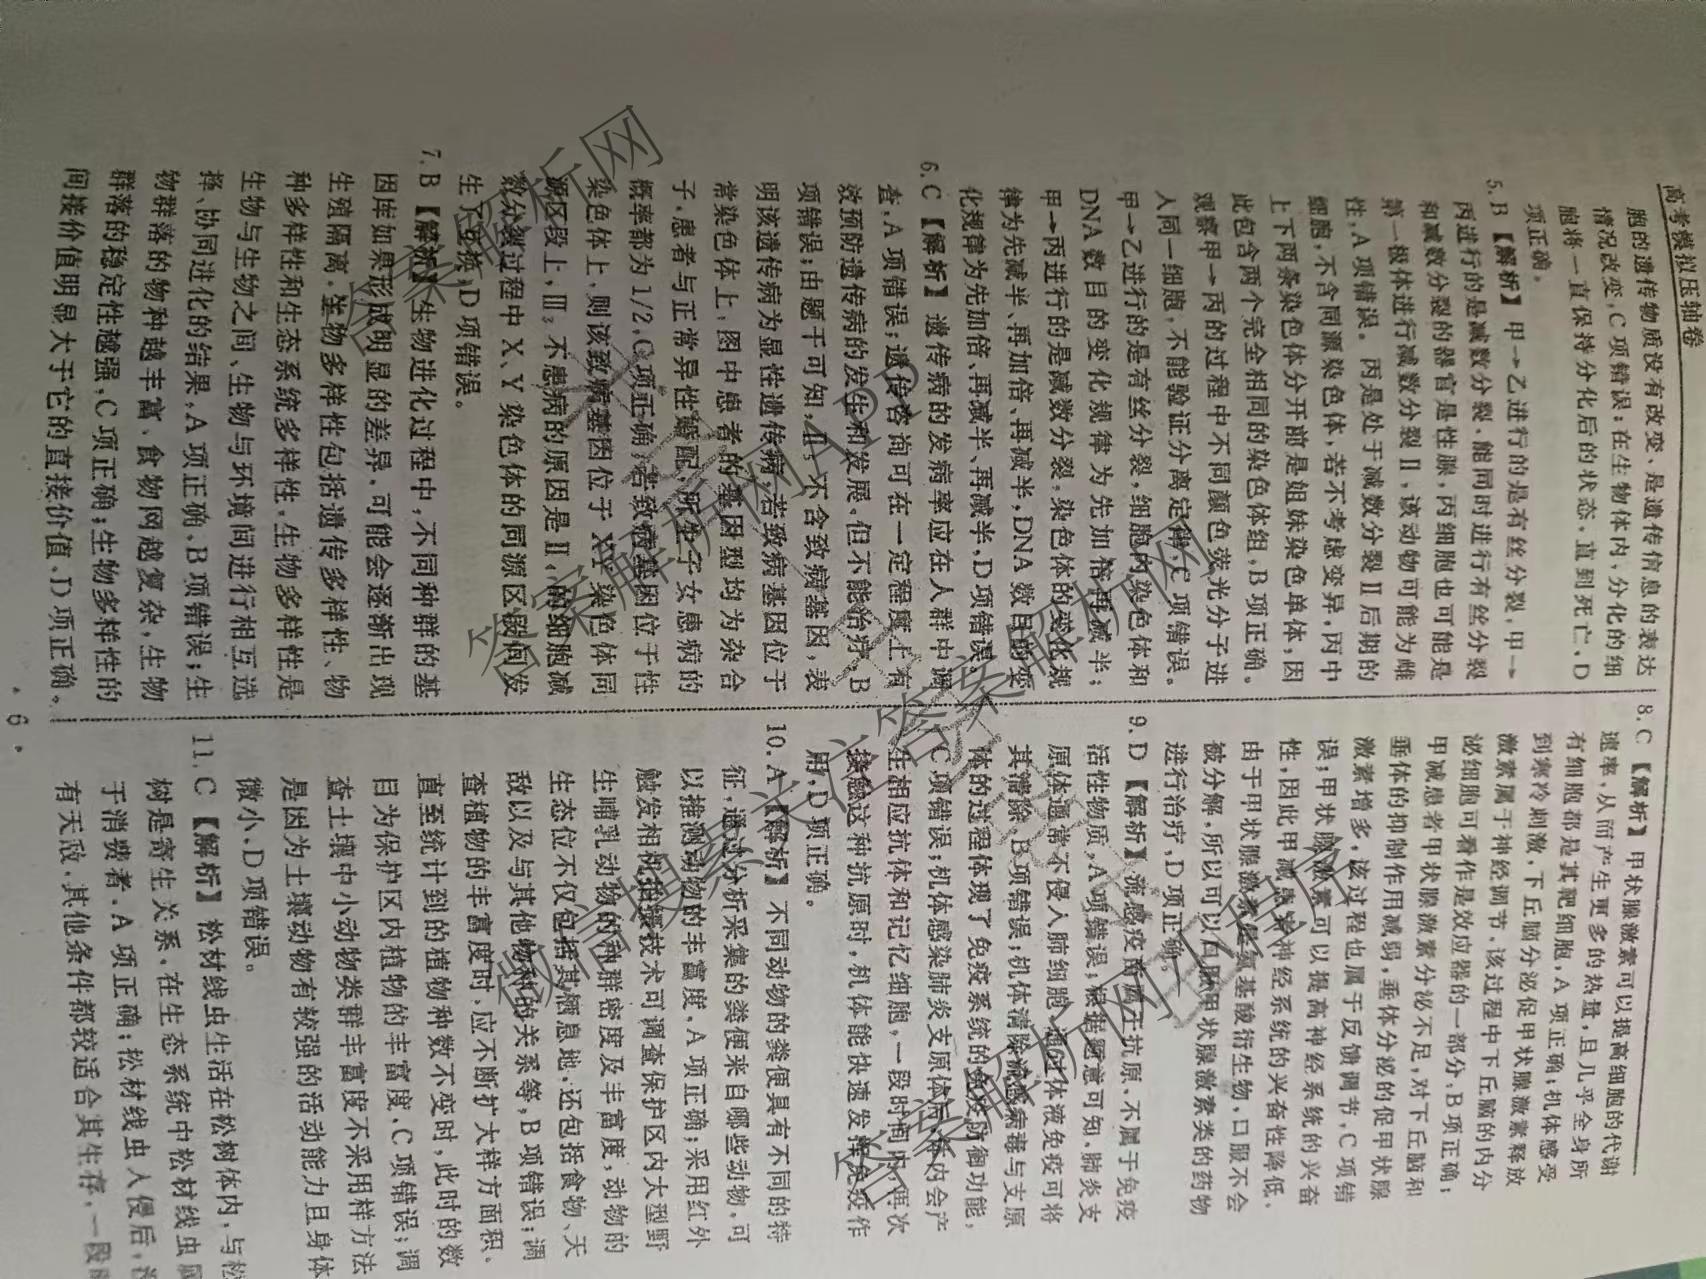 高考模拟压轴卷
胞的遗传物质没有改变,是遗传信息的表达
情况改变,C项错误;在生物体内,分化的细
胞将一直保持分化后的状态,直到死亡,D
项正确。
5.B【解析】甲→乙进行的是有丝分裂,甲→
丙进行的是减数分裂,能同时进行有丝分裂
和减数分裂的器官是性腺,丙细胞也可能是
第一极体进行减数分裂Ⅱ,该动物可能为雌
性,A项错误。丙是处于减数分裂Ⅱ后期的
细胞,不含同源染色体,若不考虑变异,丙中
上下两条染色体分开前是姐妹染色单体,因
此包含两个完全相同的染色体组,B项正确。
观察甲→丙的过程中不同颜色荧光分子进
人同一细胞,不能验证分离定律,C项错误。
甲→乙进行的是有丝分裂,细胞内染色体和
DNA数目的变化规律为先加倍再减半;
甲→丙进行的是减数分裂,染色体的变化规
律为先减半、再加倍、再减半,DNA数目的变
化规律为先加倍、再减半、再减半,D项错误。
6.C【解析】遗传病的发病率应在人群中调
查,A项错误;遗传咨询可在一定程度上有
效预防遗传病的发生和发展,但不能治疗,B
项错误;由题干可知,Ⅱ 不含致病基因,表
明该遗传病为显性遗传病,若致病基因位于
常染色体上,图中患者的基因型均为杂合
子,患者与正常异性婚配,所生子女患病的
概率都为1/2,C项正确;若致病基因位于性
染色体上,则该致病基因位于X、Y染色体同
源区段上,Ⅲ 不患病的原因是Ⅱ 的细胞减
数分裂过程中X、Y染色体的同源区段间发
生了互换,D项错误。
7.B【解析】生物进化过程中,不同种群的基
因库如果形成明显的差异,可能会逐渐出现
生殖隔离,生物多样性包括遗传多样性、物
种多样性和生态系统多样性,生物多样性是
生物与生物之间、生物与环境间进行相互选
择、协同进化的结果,A项正确,B项错误;生
物群落的物种越丰富、食物网越复杂,生物
群落的稳定性越强,C项正确;生物多样性的
间接价值明显大于它的直接价值,D项正确。
8.C【解析】甲状腺激素可以提高细胞的代谢
速率,从而产生更多的热量,且几乎全身所
有细胞都是其靶细胞,A项正确;机体感受
到寒冷刺激,下丘脑分泌促甲状腺激素释放
激素属于神经调节,该过程中下丘脑的内分
泌细胞可看作是效应器的一部分,B项正确;
甲减患者甲状腺激素分泌不足,对下丘脑和
垂体的抑制作用减弱,垂体分泌的促甲状腺
激素增多,该过程也属于反馈调节,C项错
误;甲状腺激素可以提高神经系统的兴奋
性,因此甲减患者神经系统的兴奋性降低,
由于甲状腺激素是氨基酸衍生物,口服不会
被分解,所以可以口服甲状腺激素类的药物
进行治疗,D项正确。
9.D【解析】流感疫苗属于抗原,不属于免疫
活性物质,A项错误;根据题意可知,肺炎支
原体通常不侵入肺细胞,通过体液免疫可将
其清除,B项错误;机体清除流感病毒与支原
体的过程体现了免疫系统的免疫防御功能,
C项错误;机体感染肺炎支原体后,体内会产
生相应抗体和记忆细胞,一段时间内,再次
接触这种抗原时,机体能快速发挥免疫作
用,D项正确。
10.A【解析】不同动物的粪便具有不同的特
征,通过分析采集的粪便来自哪些动物,可
以推测动物的丰富度,A项正确;采用红外
触发相机拍摄技术可调查保护区内大型野
生哺乳动物的种群密度及丰富度,动物的
生态位不仅包括其栖息地,还包括食物、天
敌以及与其他物种的关系等,B项错误;调
查植物的丰富度时,应不断扩大样方面积,
直至统计到的植物种数不变时,此时的数
目为保护区内植物的丰富度,C项错误;调
查土壤中小动物类群丰富度不采用样方法
是因为土壤动物有较强的活动能力且身体
微小,D项错误。
11.C【解析】松材线虫生活在松树体内,与松
树是寄生关系,在生态系统中松材线虫属
于消费者,A项正确;松材线虫入侵后,没
有天敌,其他条件都较适合其生存,一段
·6·
答案解析网
答案解析网APP
微信搜索关注答案解析网
答案解析网公众号